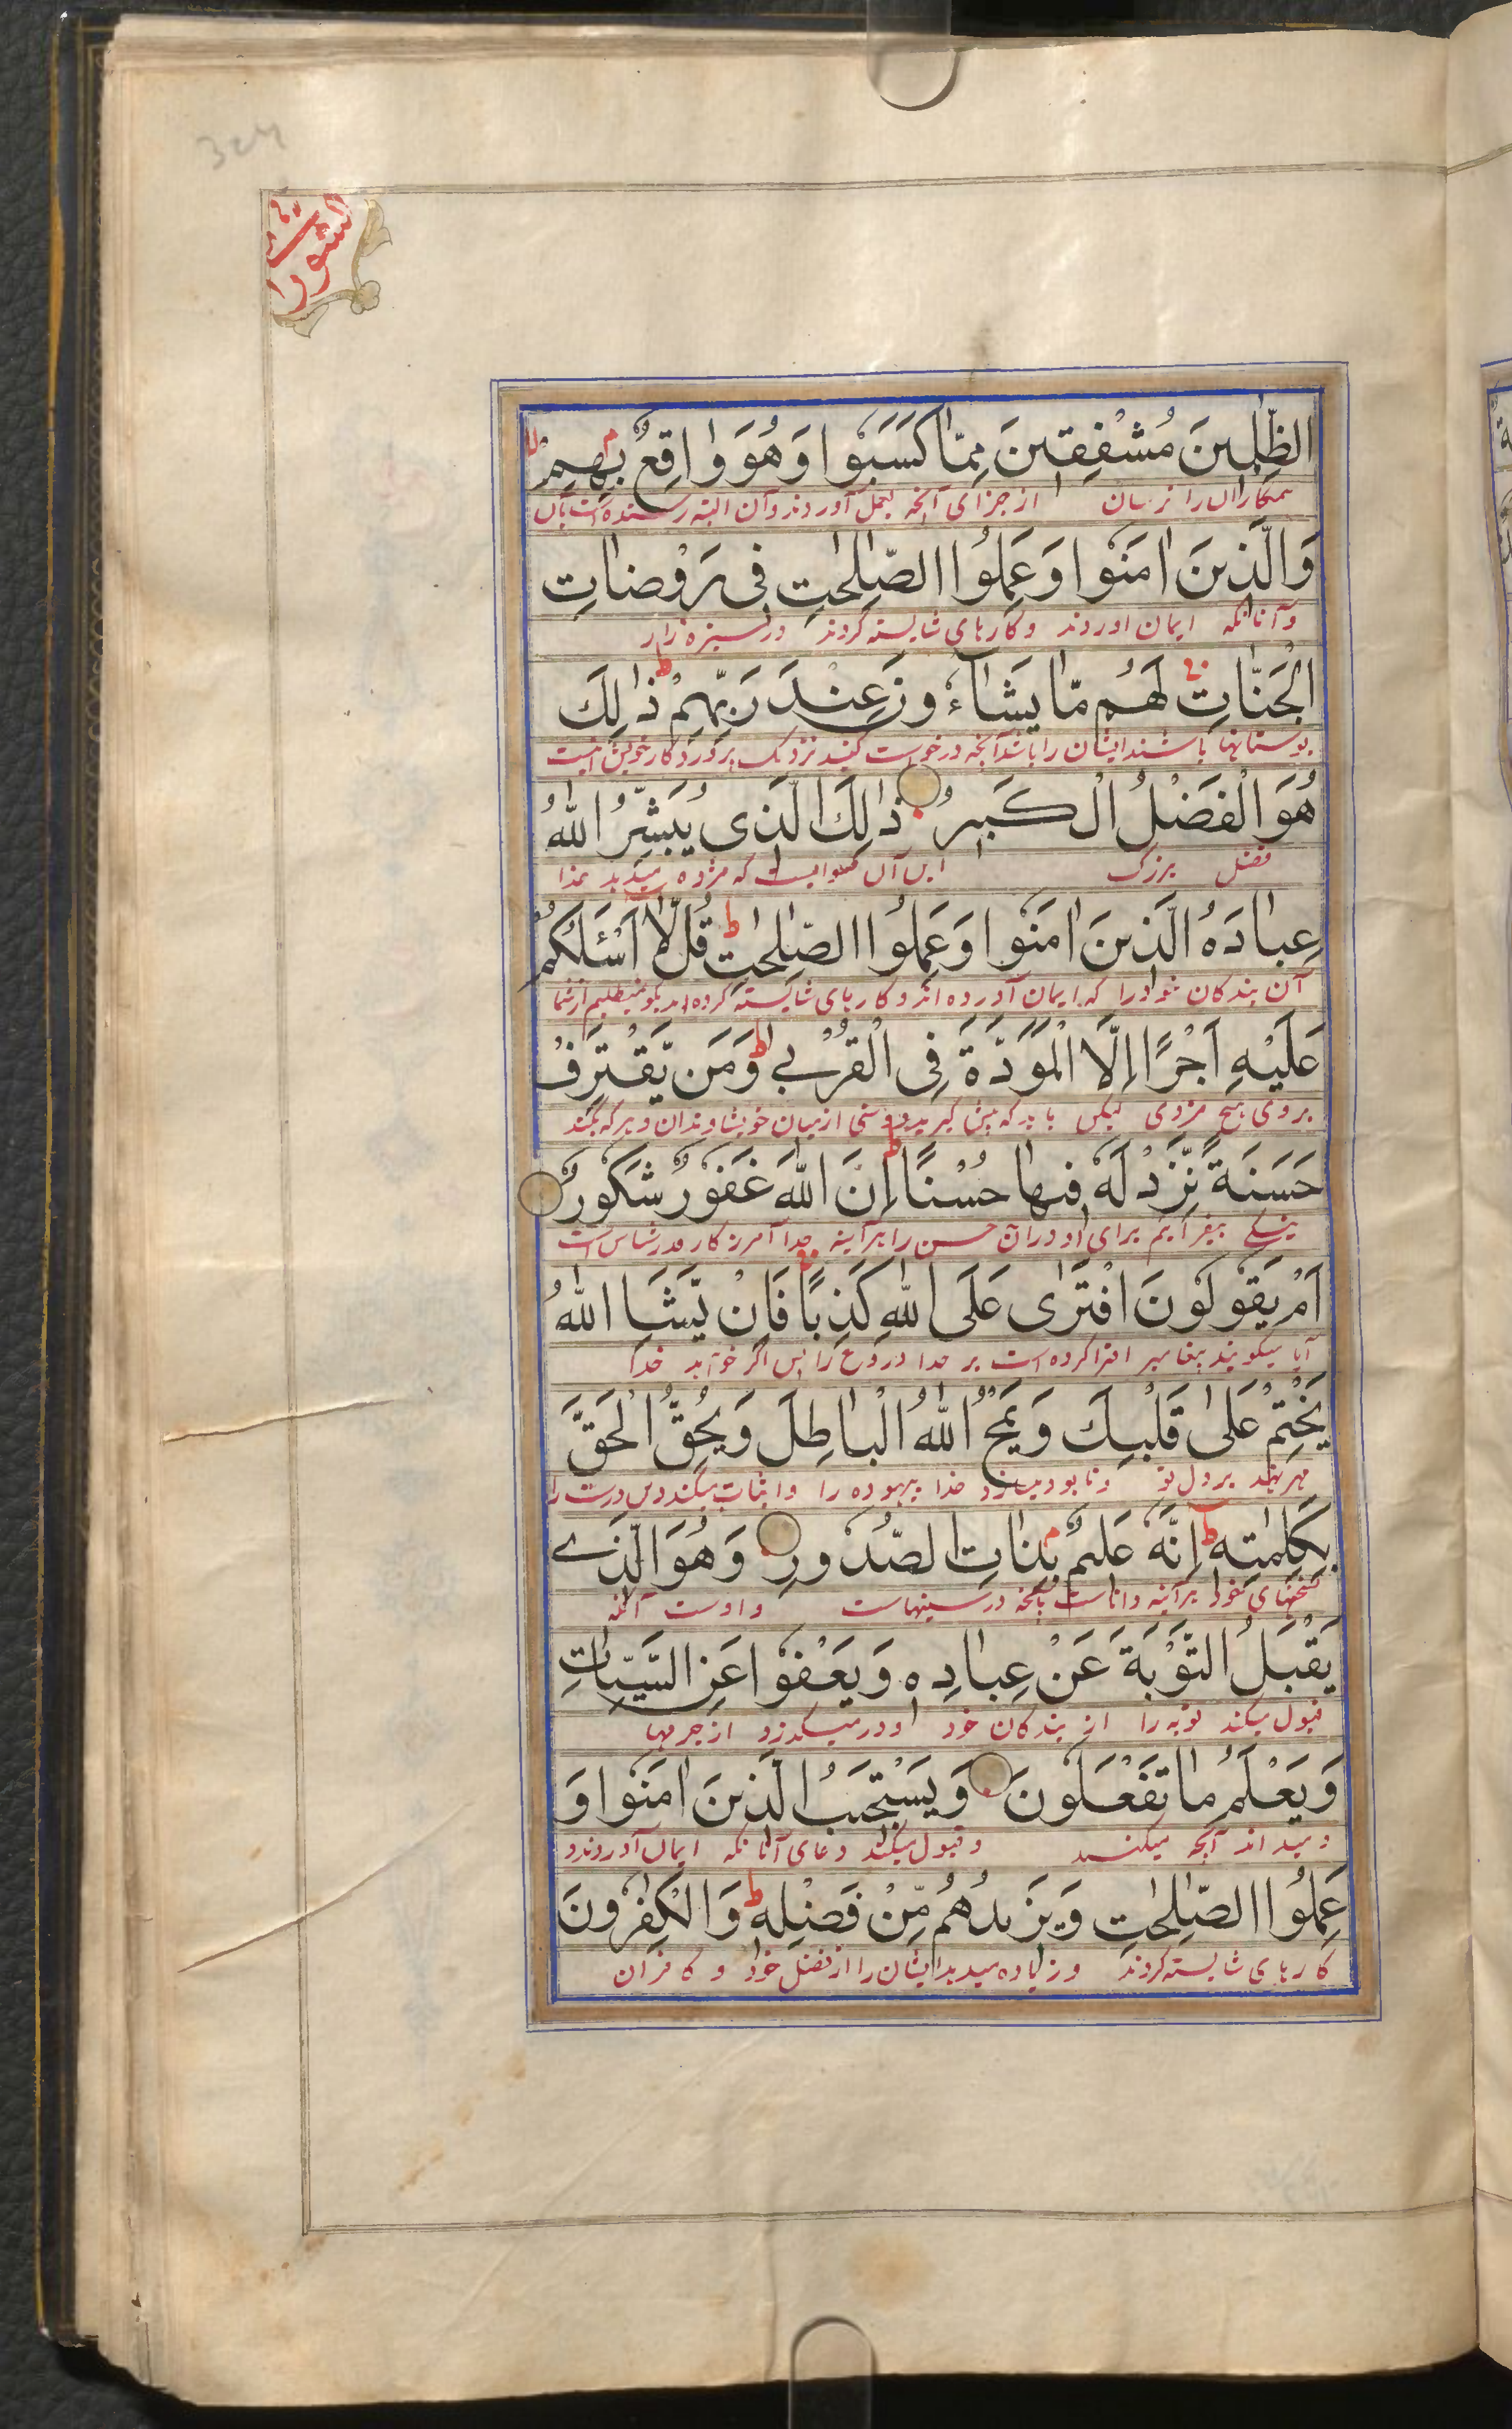 الشورا
الظّٰلِمِينَ مُشْفِقِينَ مِمَّا كَسَبُوا وَهُوَ وَاقِعٌ بِهِمْ
ستمكاران را ترسان از جزای آنچه بعمل آوردند و آن البته رسنده است بآن
وَالَّذِينَ اٰمَنُوا وَعَمِلُوا الصّٰلِحٰتِ فِى رَوْضَاتِ
و آنانکه ایمان اوردند و کارهای شایسته کردند در سبزه زار
الْجَنَّاتِ لَهُم مَّا يَشَآءُونَ عِنْدَ رَبِّهِمْ ذٰلِكَ
بوستانها باشند ایشان را باشد آنچه درخواست کنند نزدیک پروردکار خویش اینست
هُوَ الْفَضْلُ الْكَبِيرُ ذٰلِكَ الَّذِى يُبَشِّرُ اللّٰهُ
فضل بزرک این آن که مژده میدهد خدا
عِبَادَهُ الَّذِينَ اٰمَنُوا وَعَمِلُوا الصّٰلِحٰتِ قُل لَّا اَسْئَلُكُمْ
آن بندکان خود را که ایمان آورده اند و کارهای شایسته کرده اند بکو نمیطلبم از شما
عَلَيْهِ اَجْرًا اِلَّا الْمَوَدَّةَ فِى الْقُرْبٰے وَمَن يَّقْتَرِفْ
بر وی هیچ مزدی لیکن باید که پیش کیرید دوستی از میان خویشاوندان و هر که بکند
حَسَنَةً نَّزِدْ لَهٗ فِيهَا حُسْنًا اِنَّ اللّٰهَ غَفُورٌ شَكُورٌ
نیکے بیفزایم برای او دران حسن را هرآینه خدا آمرزکار قدرشناس است
اَمْ يَقُولُونَ افْتَرٰى عَلَى اللّٰهِ كَذِبًا فَاِنْ يَّشَاِ اللّٰهُ
آیا میکویند پیغامبر افترا کرده است بر خدا دروغ را پس اکر خواهد خدا
يَخْتِمْ عَلٰى قَلْبِكَ وَيَمْحُ اللّٰهُ الْبَاطِلَ وَيُحِقُّ الْحَقَّ
مهر نهد بر دل تو و نابود میسازد خدا بیهوده را و اثبات میکند دین درست را
بِكَلِمٰتِهٖ اِنَّهٗ عَلِيمٌ بِذَاتِ الصُّدُورِ وَهُوَ الَّذِے
سخنهای خود هرآینه داناست بآنچه در سینهاست و اوست آنکه
يَقْبَلُ التَّوْبَةَ عَنْ عِبَادِهٖ وَيَعْفُوا عَنِ السَّيِّاٰتِ
قبول میکند توبه را از بندکان خود و درمیکذرد از جرمها
وَيَعْلَمُ مَا تَفْعَلُونَ وَيَسْتَجِيبُ الَّذِينَ اٰمَنُوا وَ
و میداند آنچه میکنید و قبول میکند دعای آنانکه ایمان آوردند و
عَمِلُوا الصّٰلِحٰتِ وَيَزِيدُهُم مِّنْ فَضْلِهٖ وَالْكٰفِرُونَ
کارهای شایسته کردند و زیاده میدهد ایشان را از فضل خود و کافران